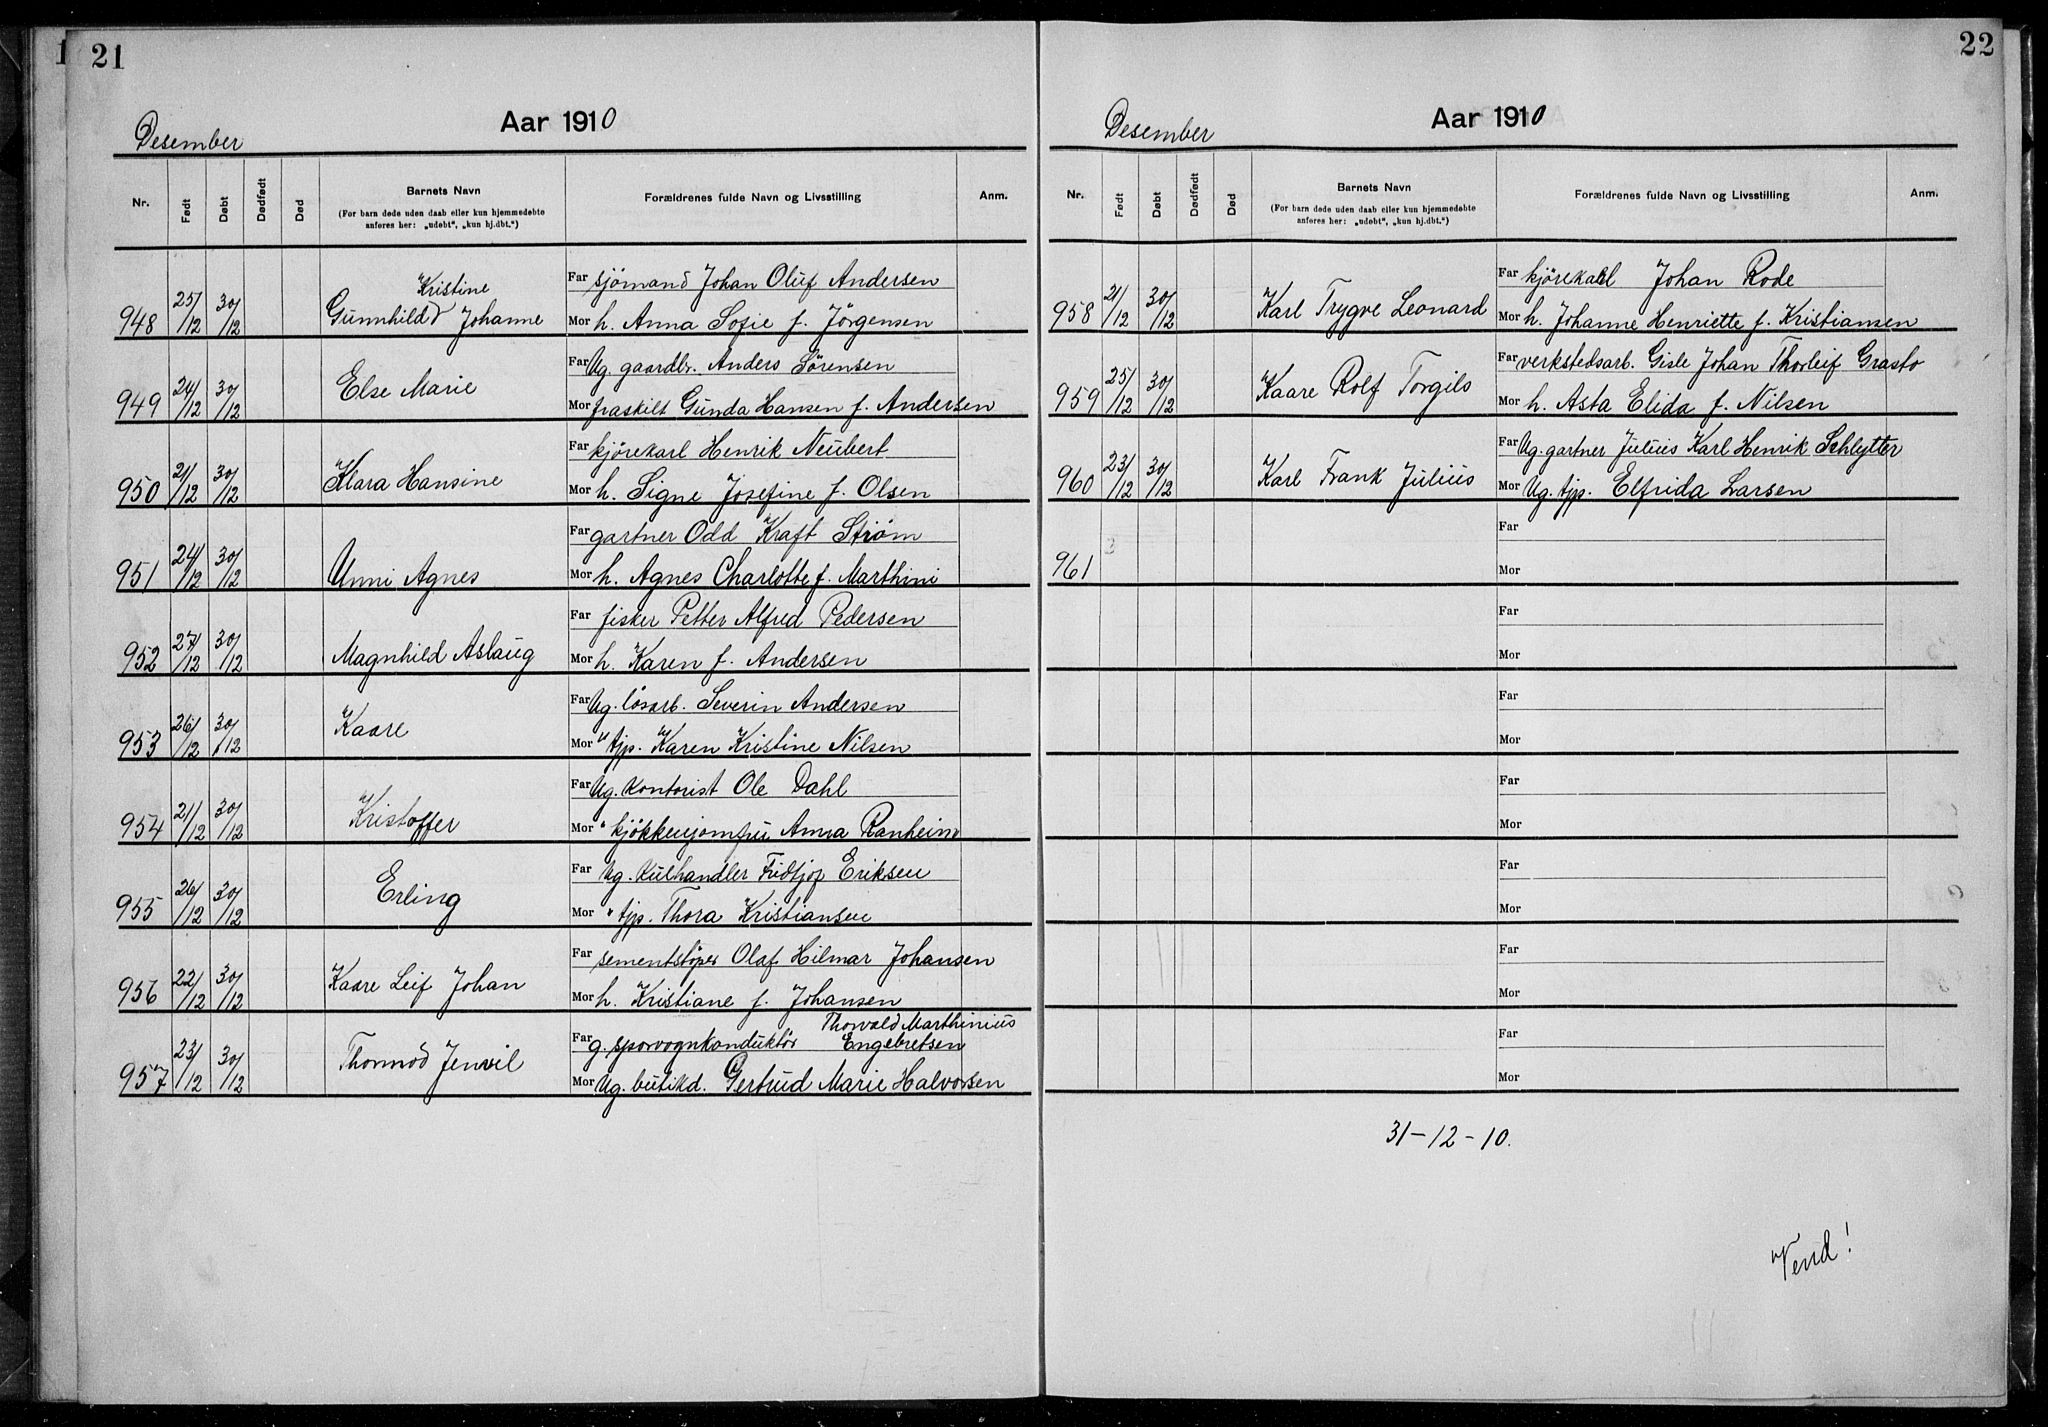 1 21
Desember
Aar 1910
Nr. Født Døbt Dødfødt Død Barnets Navn (For barn døde uden daab eller kun hjemmedøbte anføres her: „udøbt“, „kun hj.dbt.“) Forældrenes fulde Navn og Livsstilling Anm.
Kristine
Far sjömand Johan Oluf Andersen
948 25/12 30/12 Gunnhild Johanne
Mor h. Anna Sofie f. Jörgensen
Far Ug. gaardbr. Anders Sörensen
949 24/12 30/12 Else Marie
Mor fraskilt Gunda Hansen f. Andersen
Far kjörekarl Henrik Neubert
950 21/12 30/12 Klara Hansine
Mor h. Signe Josefine f. Olsen
Far gartner Odd Kraft Strøm
951 24/12 30/12 Unni Agnes
Mor h. Agnes Charlotte f. Marthini
Far fisker Petter Alfred Pedersen
952 27/12 30/12 Magnhild Aslaug
Mor h. Karen f. Andersen
Far Ug. lösarb. Severin Andersen
953 26/12 30/12 Kaare
Mor " tjp. Karen Kristine Nilsen
Far Ug. kontorist Ole Dahl
954 21/12 30/12 Kristoffer
Mor " kjökkenjomfru Anna Ranheim
Far Ug. kulhandler Fridtjof Eriksen
955 26/12 30/12 Erling
Mor " tjp. Thora Kristiansen
Far sementstöper Olaf Hilmar Johansen
956 22/12 30/12 Kaare Leif Johan
Mor h. Kristiane f. Johansen
Thorvald Marthinius
Far g. sporvognkonduktör Engebretsen
957 23/12 30/12 Thormod Jenvil
Mor Ug. butikd. Gertrud Marie Halvorsen
22
Desember
Aar 1910
Nr. Født Døbt Dødfødt Død Barnets Navn (For barn døde uden daab eller kun hjemmedøbte anføres her: „udøbt“, „kun hj.dbt.“) Forældrenes fulde Navn og Livsstilling Anm.
Far kjörekarl Johan Rode
958 21/12 30/12 Karl Trygve Leonard
Mor h. Johanne Henriette f. Kristiansen
Far verkstedsarb. Gisle Johan Thorleif Grasto
959 25/12 30/12 Kaare Rolf Torgils
Mor h. Asta Elida f. Nilsen
Far Ug. gartner Julius Karl Henrik Schlytter
960 23/12 30/12 Karl Frank Julius
Mor Ug. tjp. Elfrida Larsen
Far
961
Mor
Far
Mor
Far
Mor
Far
Mor
Far
Mor
Far
Mor
Far
Mor
31-12-10.
Vend!